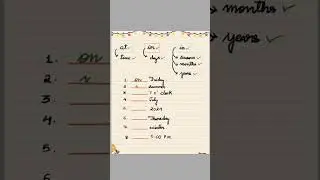 at ✓ on ✓ in ✓
time ✓ days ✓ seasons ✓
months ✓
years ✓
1. on Friday
2. summer
3. 7 o' clock
4. July
5.
6. Thursday
7. winter
8. 5:00 P.M.
months ✓
years ✓
1. on
2.
3.
4.
5.